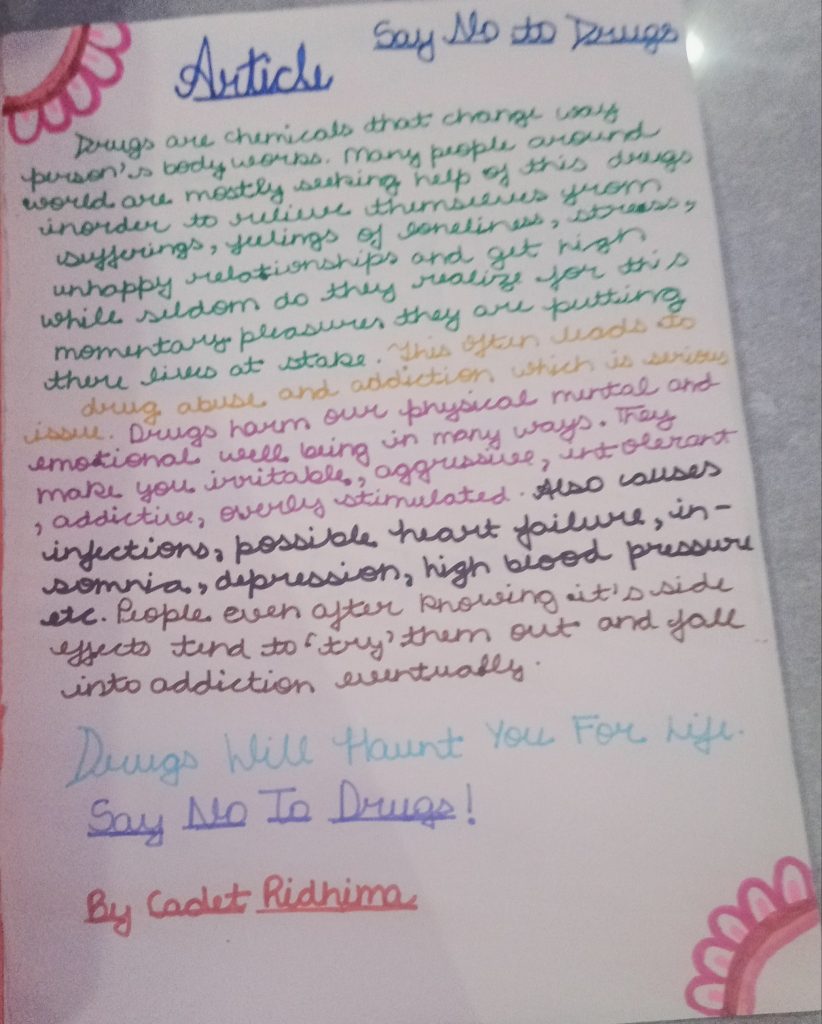 Say No to Drugs
Article
Drugs are chemicals that change way
person's body works. Many people around
world are mostly seeking help of this drugs
inorder to relieve themselves from
sufferings, feelings of loneliness, stress,
unhappy relationships and get high
while seldom do they realize for this
momentary pleasures they are putting
there lives at stake. This often leads to
drug abuse and addiction which is serious
issue. Drugs harm our physical mental and
emotional well being in many ways. They
make you irritable, aggressive, intolerant
, addictive, overly stimulated. Also causes
infections, possible heart failure, in-
somnia, depression, high blood pressure
etc. People even after knowing it's side
effects tend to 'try' them out and fall
into addiction eventually.
Drugs Will Haunt You For Life.
Say No To Drugs!
By Cadet Ridhima